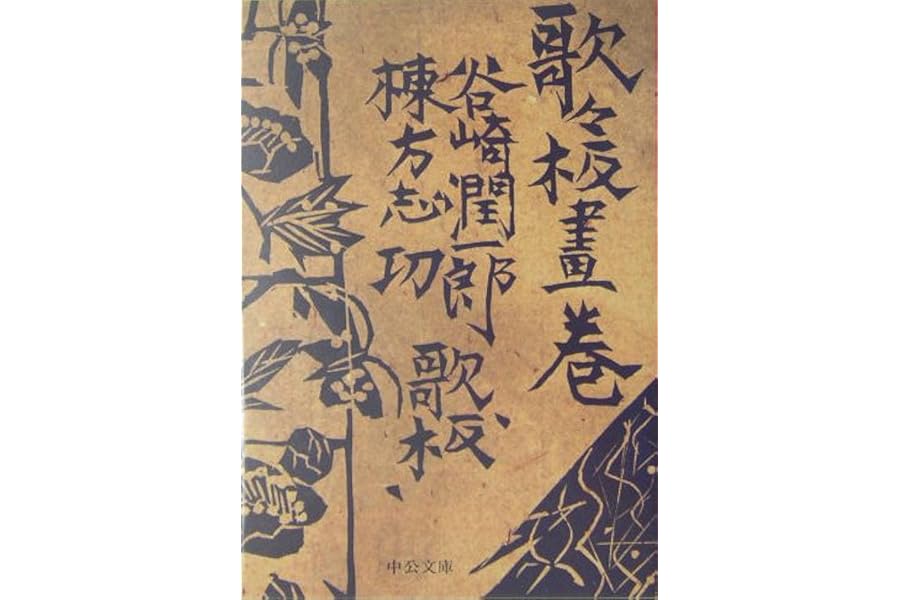 歌々板畫巻
谷崎潤一郎
棟方志功
歌、板、
中公文庫